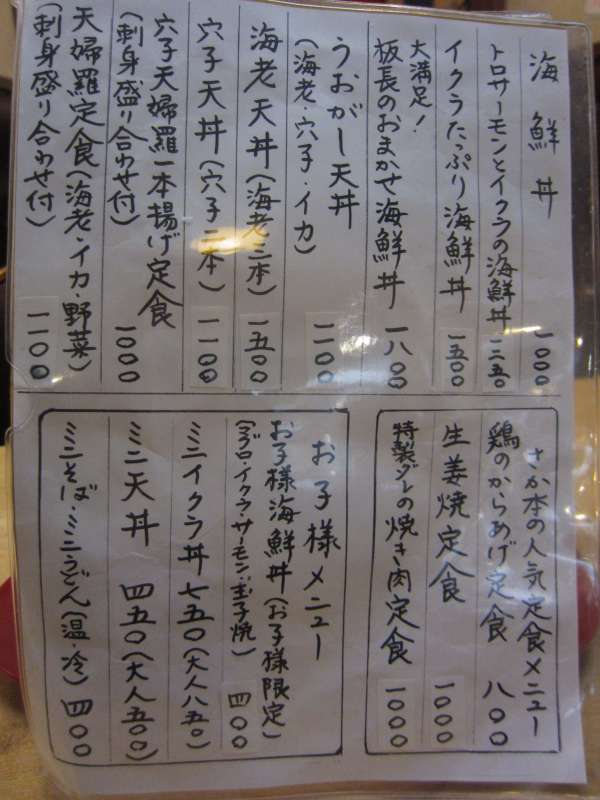 海鮮丼 一〇〇〇
トロサーモンとイクラの海鮮丼 一三五〇
イクラたっぷり海鮮丼 一五〇〇
大満足!
板長のおまかせ海鮮丼 一八〇〇
うおがし天丼
(海老・穴子・イカ) 一一〇〇
海老天丼(海老三本) 一五〇〇
穴子天丼(穴子二本) 一一〇〇
穴子天婦羅一本揚げ定食
(刺身盛り合わせ付) 一〇〇〇
天婦羅定食(海老・イカ・野菜)
(刺身盛り合わせ付) 一一〇〇
さか本の人気定食メニュー
鶏のからあげ定食 八〇〇
生姜焼定食 一〇〇〇
特製ダレの焼き肉定食 一〇〇〇
お子様メニュー
お子様海鮮丼(お子様限定)
(マグロ・イクラ・サーモン・玉子焼) 四〇〇
ミニイクラ丼 七五〇(大人八五〇)
ミニ天丼 四五〇(大人五〇〇)
ミニそば・ミニうどん(温・冷) 四〇〇